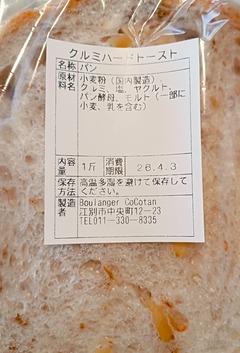 クルミハードトースト
名称 パン
原材料名 小麦粉(国内製造)、
クルミ、塩、ヤクルト、
パン酵母、モルト(一部に
小麦、乳を含む)
内容量 1斤 消費期限 26.4.3
保存方法 高温多湿を避けて保存して
ください。
製造者 Boulanger CoCotan
江別市中央町12-23
TEL011-330-8335